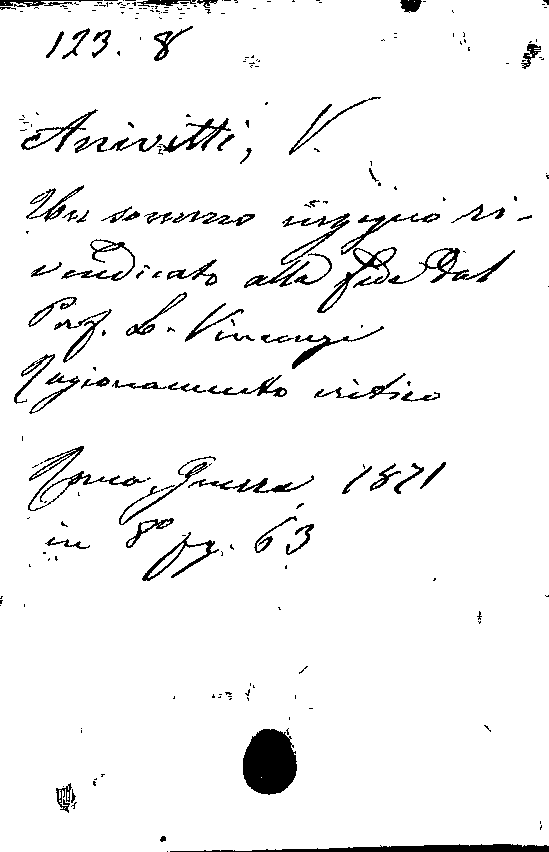 123. 8
Anivitti, V.
Un sommo ingegno ri-
vendicato alla fede dal
Prof. L. Vincenzi
Ragionamento critico
Roma, Guerra 1871
in 8º pg. 63